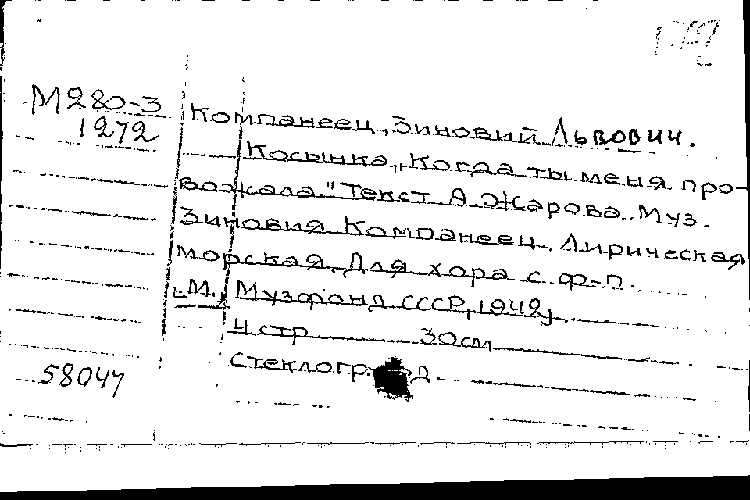 М280-3
1272
Компанеец, Зиновий Львович.
Косынка "Когда ты меня про-
вожала" Текст А. Жарова. Муз.
Зиновия Компанеец. Лирическая
морская. Для хора с ф-п.
[М.] Музфонд СССР, [1942]
4 стр 30см
Стеклогр.
58047